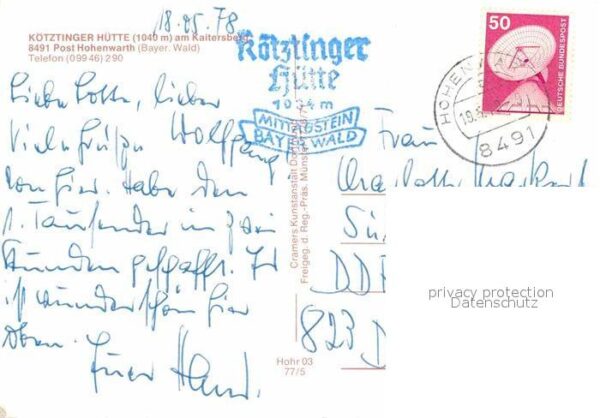 18.05.78
KÖTZTINGER HÜTTE (1040 m) am Kaitersberg
8491 Post Hohenwarth (Bayer. Wald)
Telefon (09946) 290
Kötztinger
Hütte
1034 m
MITTAGSTEIN
BAYER. WALD
50
DEUTSCHE BUNDESPOST
8491
Liebe Lotte, lieber
Wolfgang,
viele Grüße
von hier. Habe den
1. Tausender in zwei
Stunden geschafft. Es
ist wunderschön hier
oben.
Euer
Frau
DDR
823
Cramers Kunstanstalt Dortmund
Freigeg. d. Reg.-Präs. Münster
Hohr 03
77/5
privacy protection
Datenschutz